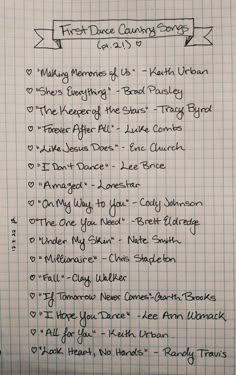 First Dance Country Songs
(pt. 21) ♡
♡ "Making Memories of Us" - Keith Urban
♡ "She's Everything" - Brad Paisley
♡ "The Keeper of the Stars" - Tracy Byrd
♡ "Forever After All" - Luke Combs
♡ "Like Jesus Does" - Eric Church
♡ "I Don't Dance" - Lee Brice
♡ "Amazed" - Lonestar
♡ "On My Way to You" - Cody Johnson
♡ "The One You Need" - Brett Eldredge
♡ "Under My Skin" - Nate Smith
♡ "Millionaire" - Chris Stapleton
♡ "Fall" - Clay Walker
♡ "If Tomorrow Never Comes" - Garth Brooks
♡ "I Hope You Dance" - Lee Ann Womack
♡ "All for You" - Keith Urban
♡ "Look Heart, No Hands" - Randy Travis